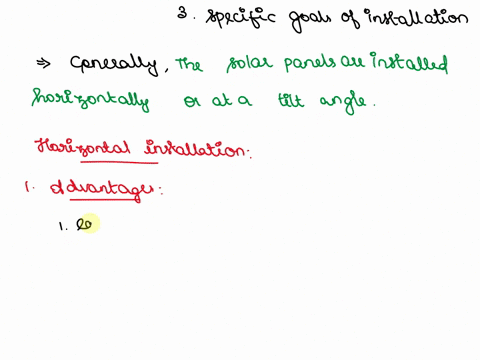 3. specific goals of installation
⇒ Generally, The solar panels are installed
horizontally or at a tilt angle.
Horizontal installation:
1. Advantages:
1.